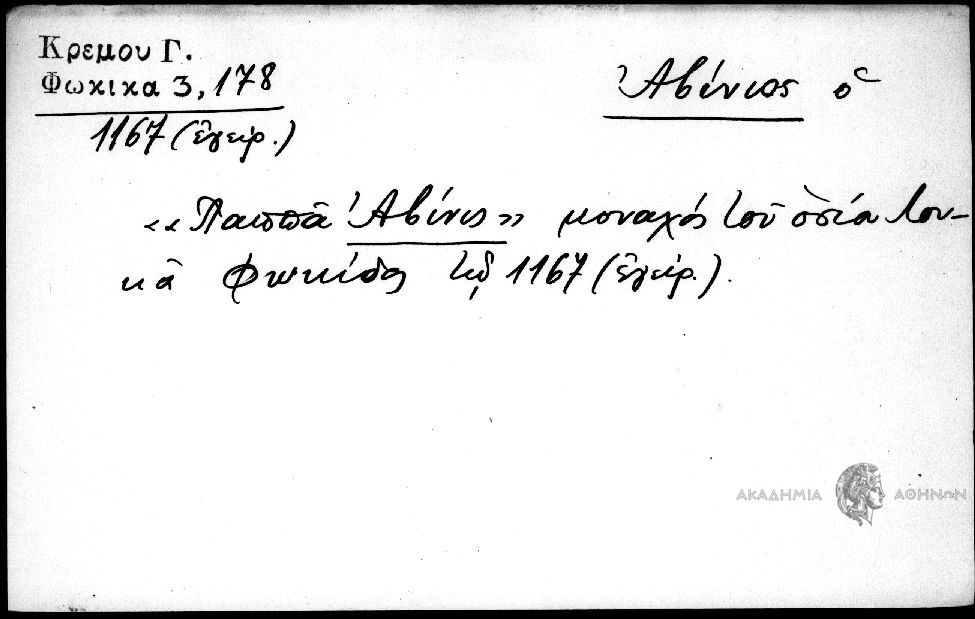 Κρεμου Γ.
Φωκικα 3, 178
1167 (ἔγγρ.)
Ἀβένιος ὁ
«Παππᾶ Ἀβένις» μοναχός τοῦ ὁσία Λου-
κᾶ Φωκίδος τῷ 1167 (ἔγγρ.).
ΑΚΑΔΗΜΙΑ ΑΘΗΝΩΝ